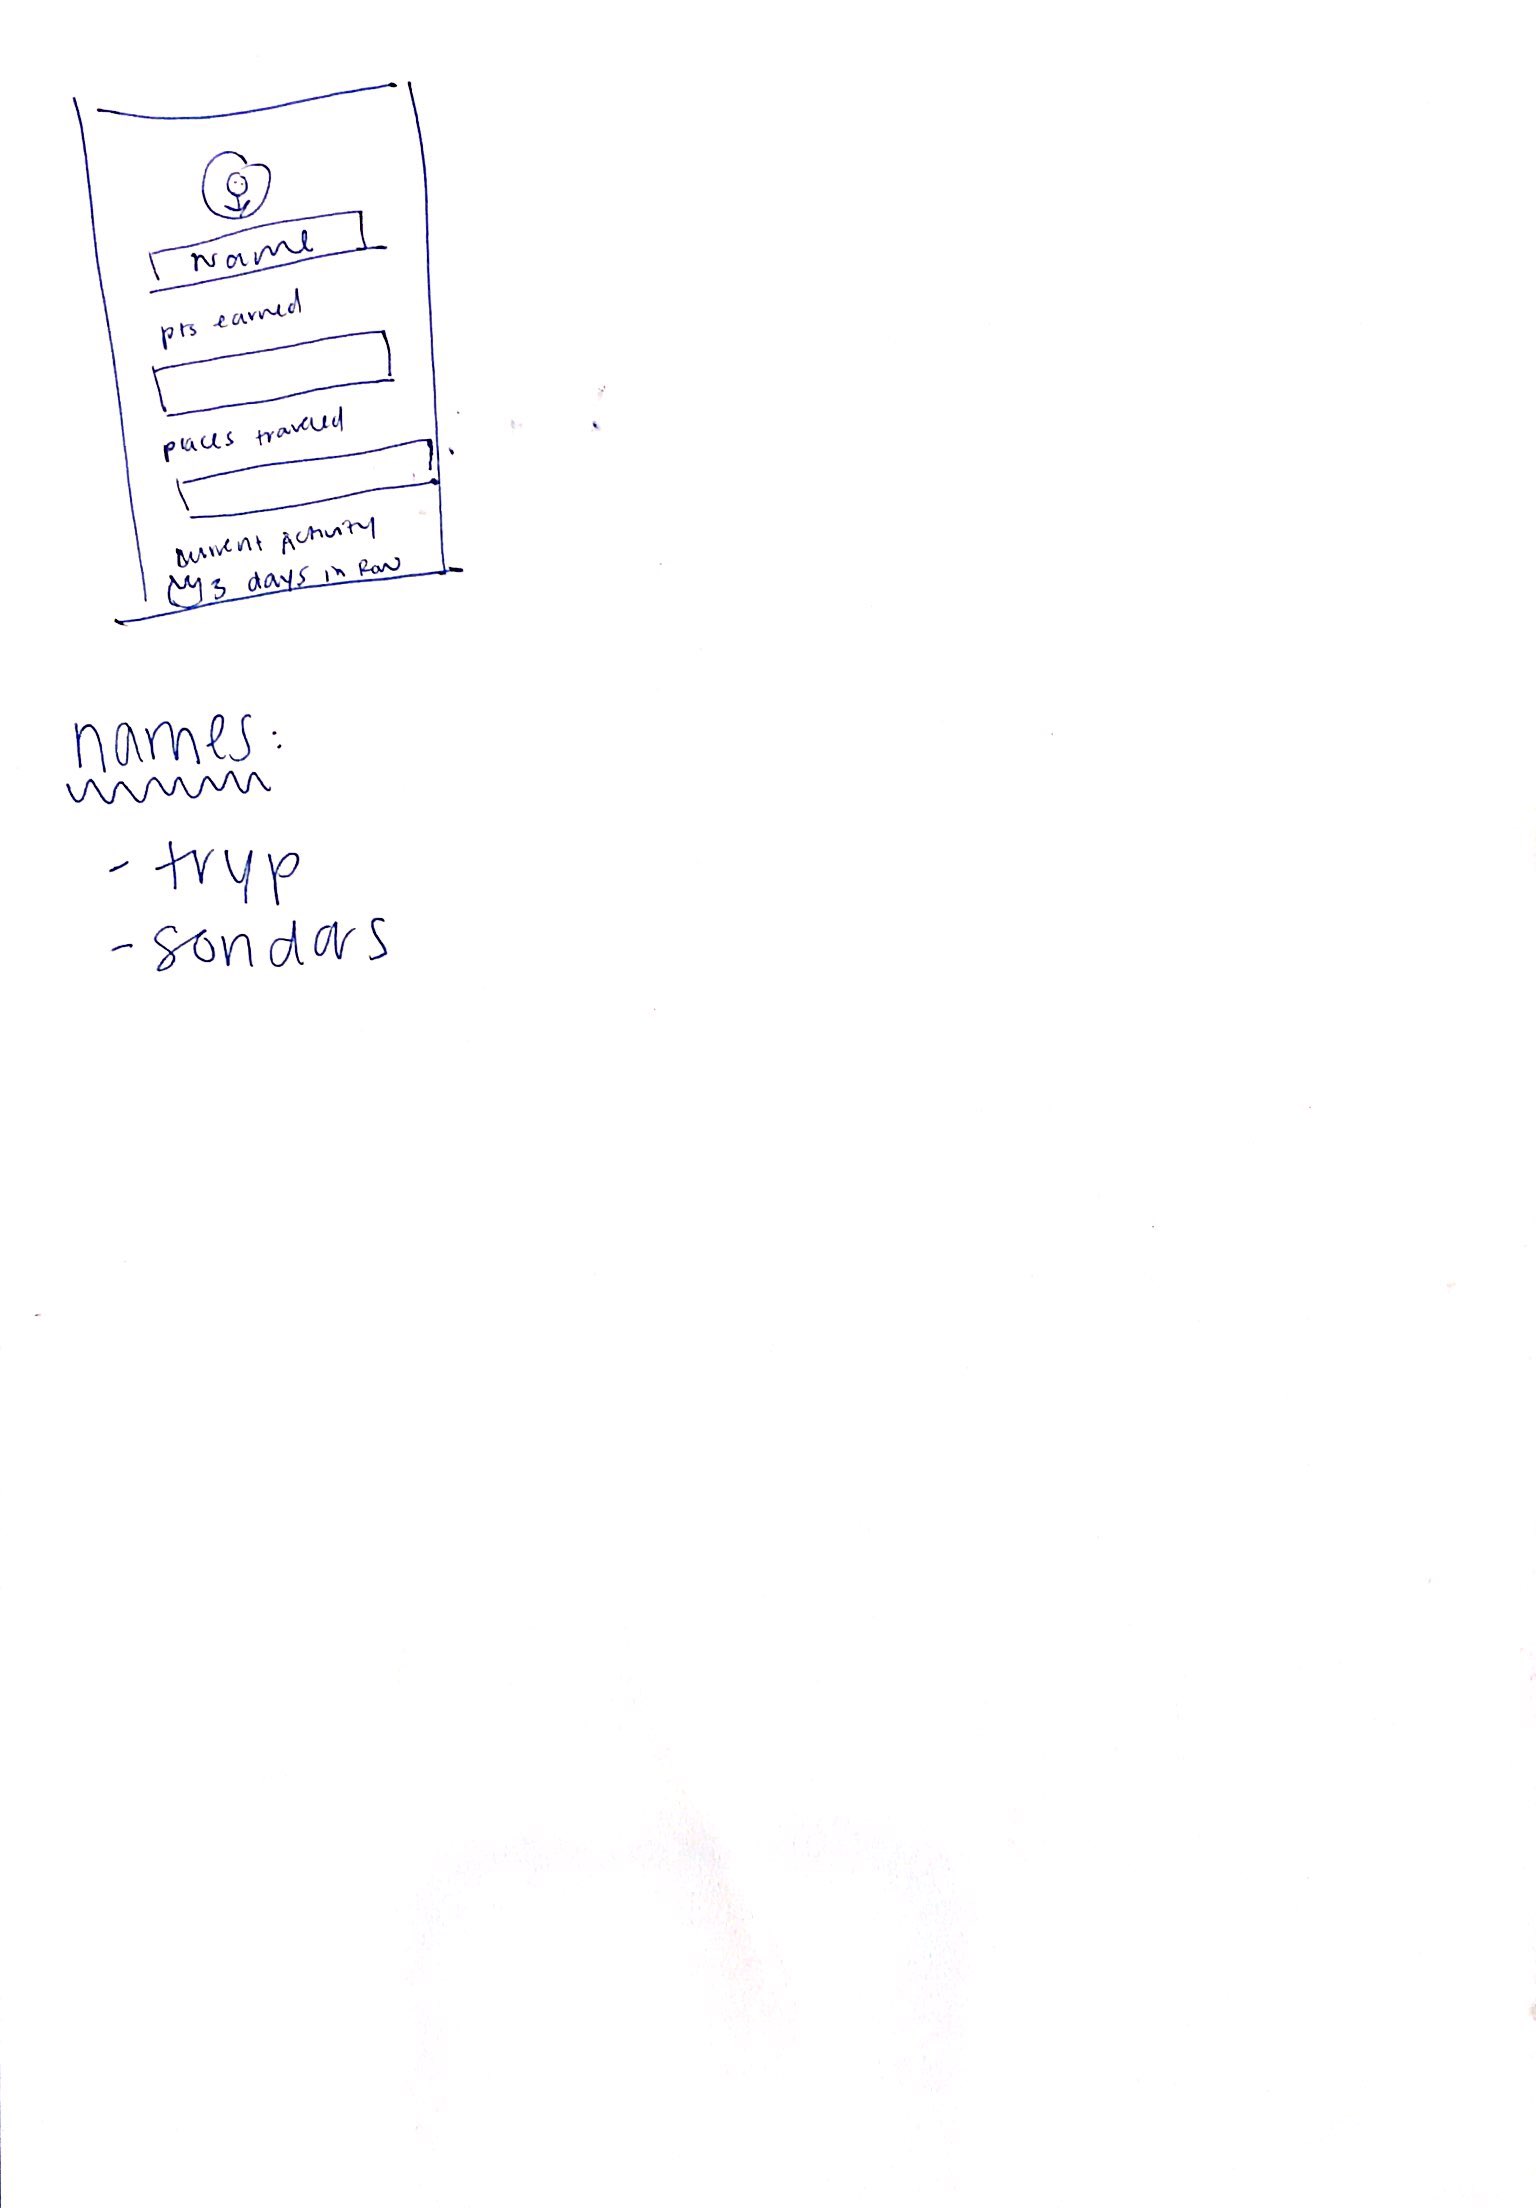 Name
pts earned
places traveled
current Activity
3 days in Row
names:
- tryp
- sondars